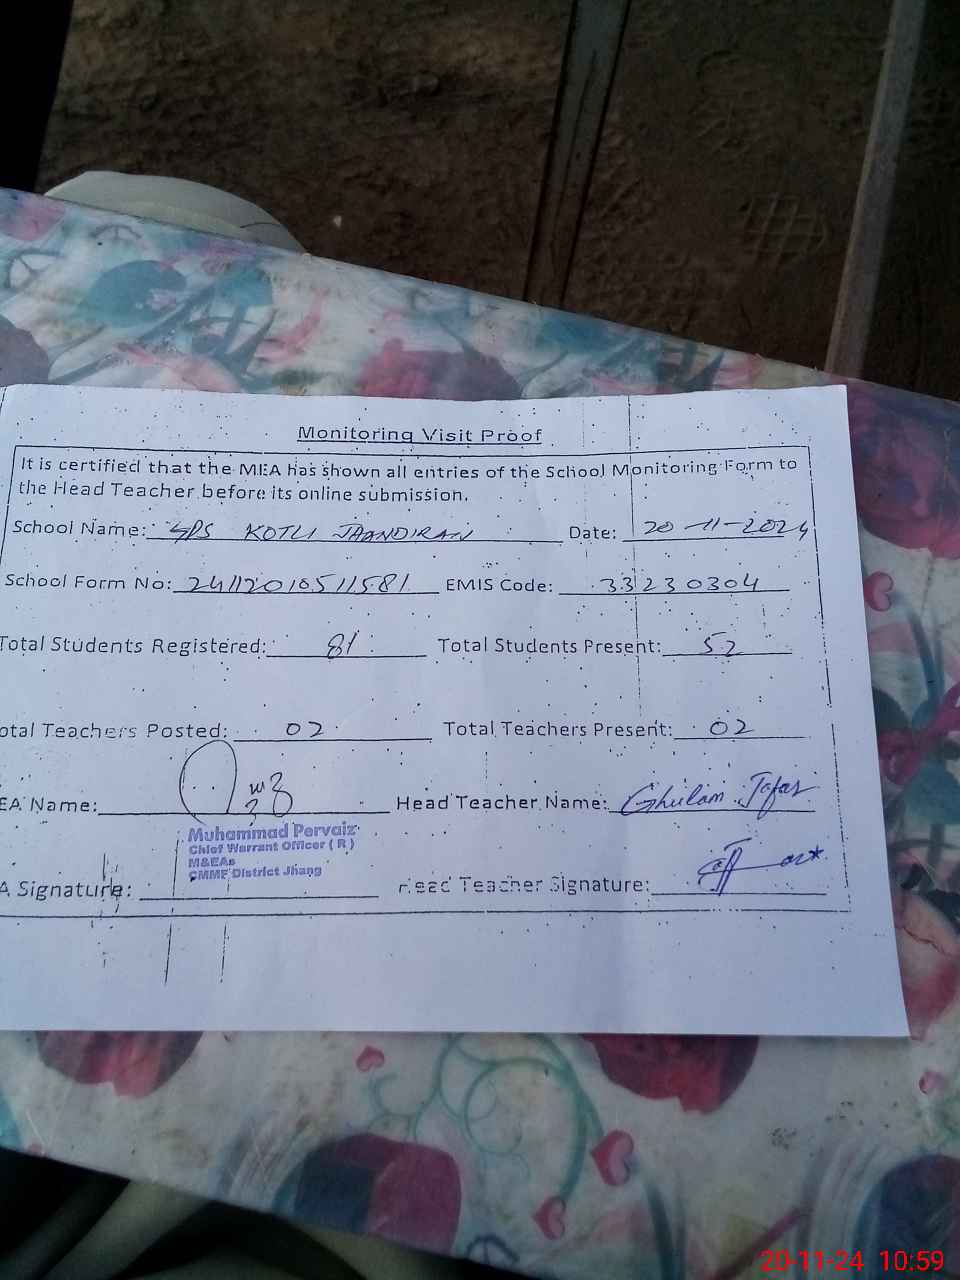 Monitoring Visit Proof
It is certified that the MEA has shown all entries of the School Monitoring Form to
the Head Teacher before its online submission.
School Name: GPS KOTLI JAANDIRAN Date: 20-11-2024
School Form No: 241120105115 81 EMIS Code: 33230304
Total Students Registered: 81 Total Students Present: 52
otal Teachers Posted: 02 Total Teachers Present: 02
EA Name: Head Teacher Name: Ghulam Jafar
Muhammad Pervaiz
Chief Warrant Officer ( R )
M&EAs
CMMF District Jhang
A Signature: Head Teacher Signature:
20-11-24 10:59